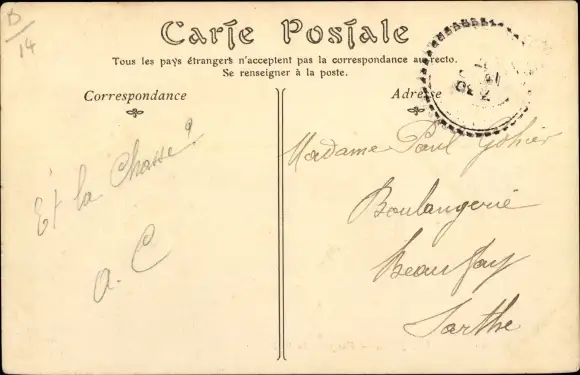 B/14
Carte Postale
Tous les pays étrangers n'acceptent pas la correspondance au recto.
Se renseigner à la poste.
Correspondance
Adresse
Et la Chasse?
a. C
Madame Paul Gohier
Boulangerie
Beaufay
Sarthe